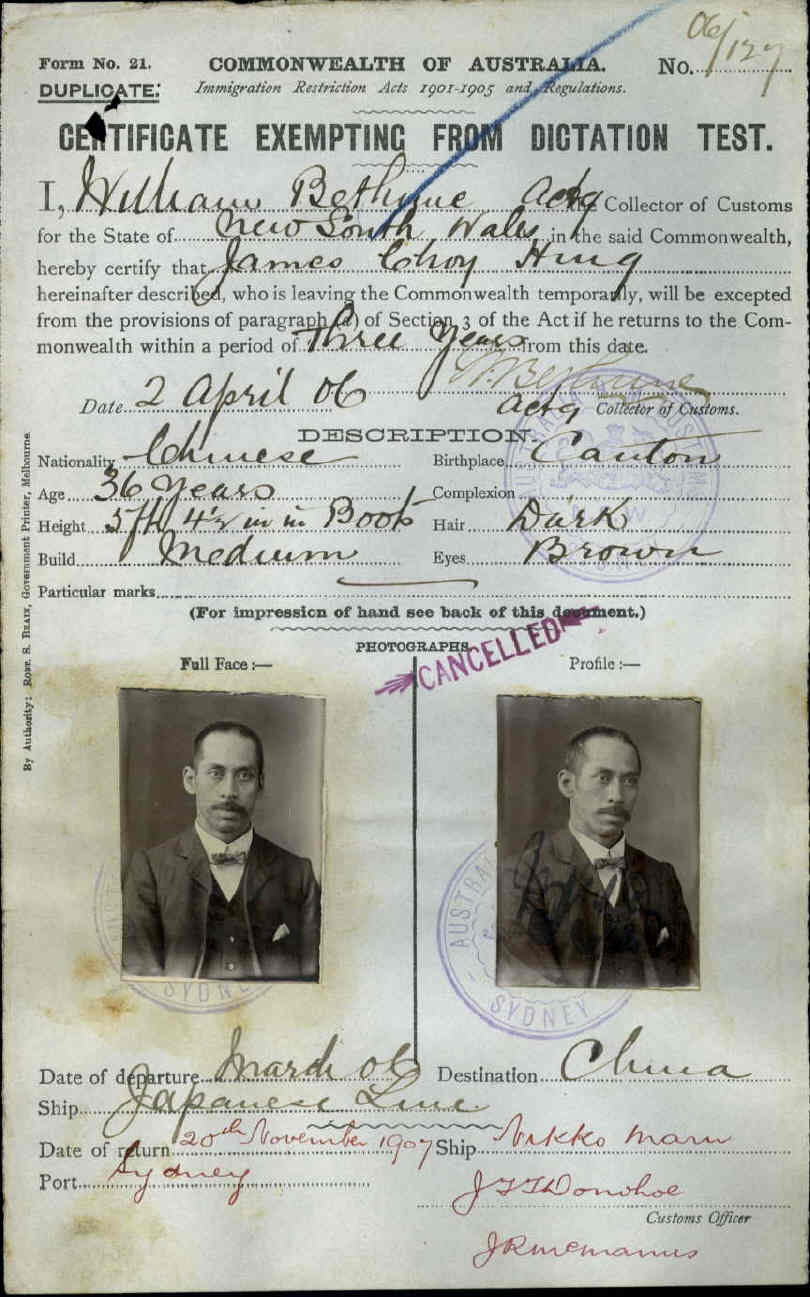 Form No. 21.
COMMONWEALTH OF AUSTRALIA.
No. 06/127
DUPLICATE.
Immigration Restriction Acts 1901-1905 and Regulations.
CERTIFICATE EXEMPTING FROM DICTATION TEST.
I, William Bethune Actg Collector of Customs
for the State of New South Wales in the said Commonwealth,
hereby certify that James Choy Hing
hereinafter described, who is leaving the Commonwealth temporarily, will be excepted
from the provisions of paragraph (a) of Section 3 of the Act if he returns to the Com-
monwealth within a period of Three Years from this date.
W. Bethune
Date 2 April 06
Actg Collector of Customs.
DESCRIPTION.
Nationality Chinese Birthplace Canton
Age 36 Years Complexion
Height 5 ft 4½ in in Boots Hair Dark
Build Medium Eyes Brown
Particular marks
(For impression of hand see back of this document.)
PHOTOGRAPHS.
CANCELLED
Full Face :— Profile :—
By Authority: ROBT. S. BRAIN, Government Printer, Melbourne.
SYDNEY
AUSTRAL
SYDNEY
Date of departure March 06 Destination China
Ship Japanese Line
Date of return 20th November 1907 Ship Nikko Maru
Port Sydney
J T T Donohoe
Customs Officer
J R McManus